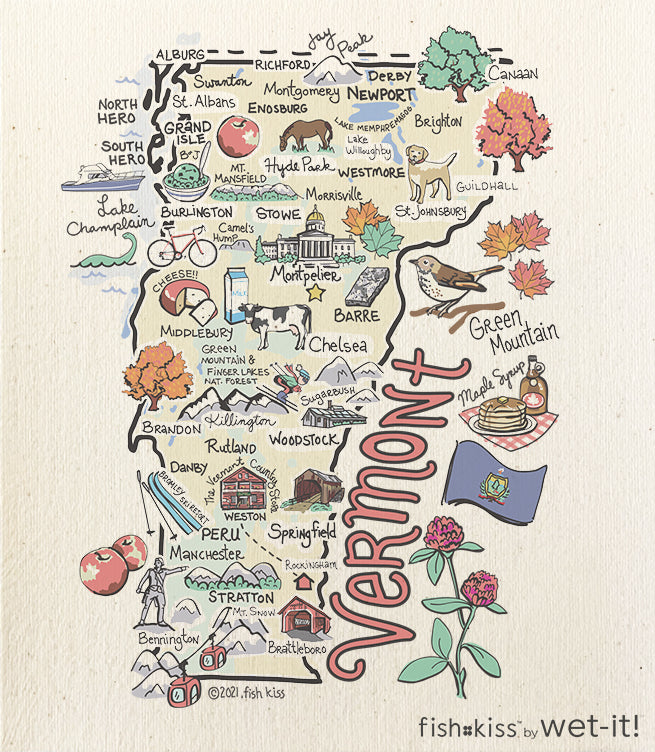 Jay Peak
ALBURG
RICHFORD
DERBY
CANAAN
Swanton
Montgomery
NEWPORT
St. Albans
ENOSBURG
NORTH HERO
LAKE MEMPHREMAGOG
Brighton
GRAND ISLE
Lake Willoughby
SOUTH HERO
B+J
Hyde Park
WESTMORE
MT. MANSFIELD
GUILDHALL
Morrisville
Lake Champlain
BURLINGTON
STOWE
St. JOHNSBURY
Camel's Hump
Montpelier
CHEESE!!
MILK
BARRE
MIDDLEBURY
Green Mountain
Chelsea
GREEN MOUNTAIN & FINGER LAKES NAT. FOREST
Vermont
Maple Syrup
Sugarbush
Killington
BRANDON
WOODSTOCK
Rutland
DANBY
The Vermont Country Store
BROMLEY SKI RESORT
WESTON
PERU
Springfield
Manchester
ROCKINGHAM
STRATTON
MT. SNOW
Bennington
Brattleboro
©2021, fish kiss
fish kiss™ by wet-it!